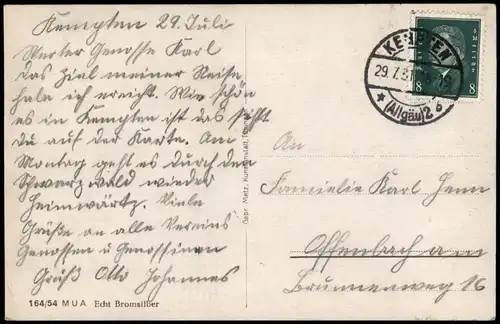 Kempten 29. Juli
Werter Genosse Karl
das Ziel meiner Reise
habe ich erreicht. Wie schön
es in Kempten ist das siehst
du auf der Karte. Am
Montag geht es durch den
Schwarzwald wieder
Heimwärtz. Viele
Grüße an alle Vereins
Genossen u Genossinen
Gruß Otto Johannes
164/54 M U A Echt Bromsilber
Gebr. Metz, Kunstanstalt,
KEMPTEN
29.7.31
(Allgäu) 2 b
8 8
An
Famielie Karl Henn
Offenbach a/m
Brunnenweg 16